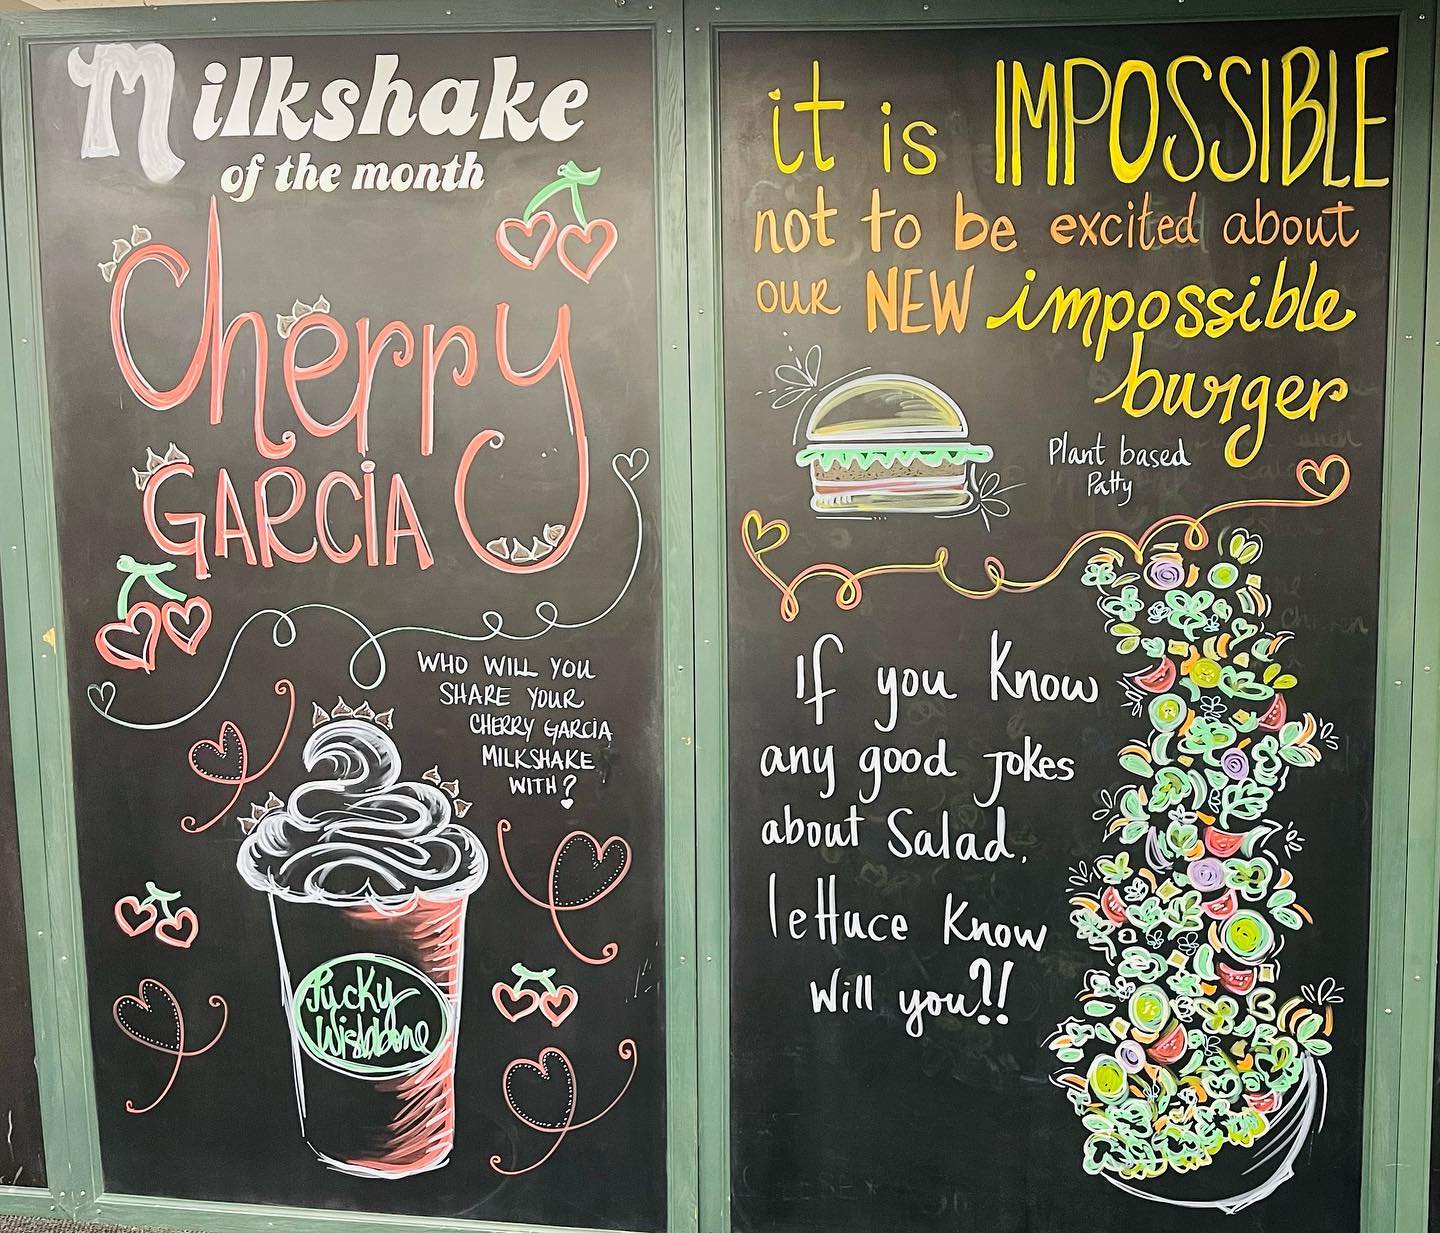 Milkshake
of the month
Cherry
GARCIA
WHO WILL YOU
SHARE YOUR
CHERRY GARCIA
MILKSHAKE
WITH?
Pucky
Wishbone
it is IMPOSSIBLE
not to be excited about
our NEW impossible
burger
Plant based
Patty
If you know
any good jokes
about Salad.
lettuce know
will you?!